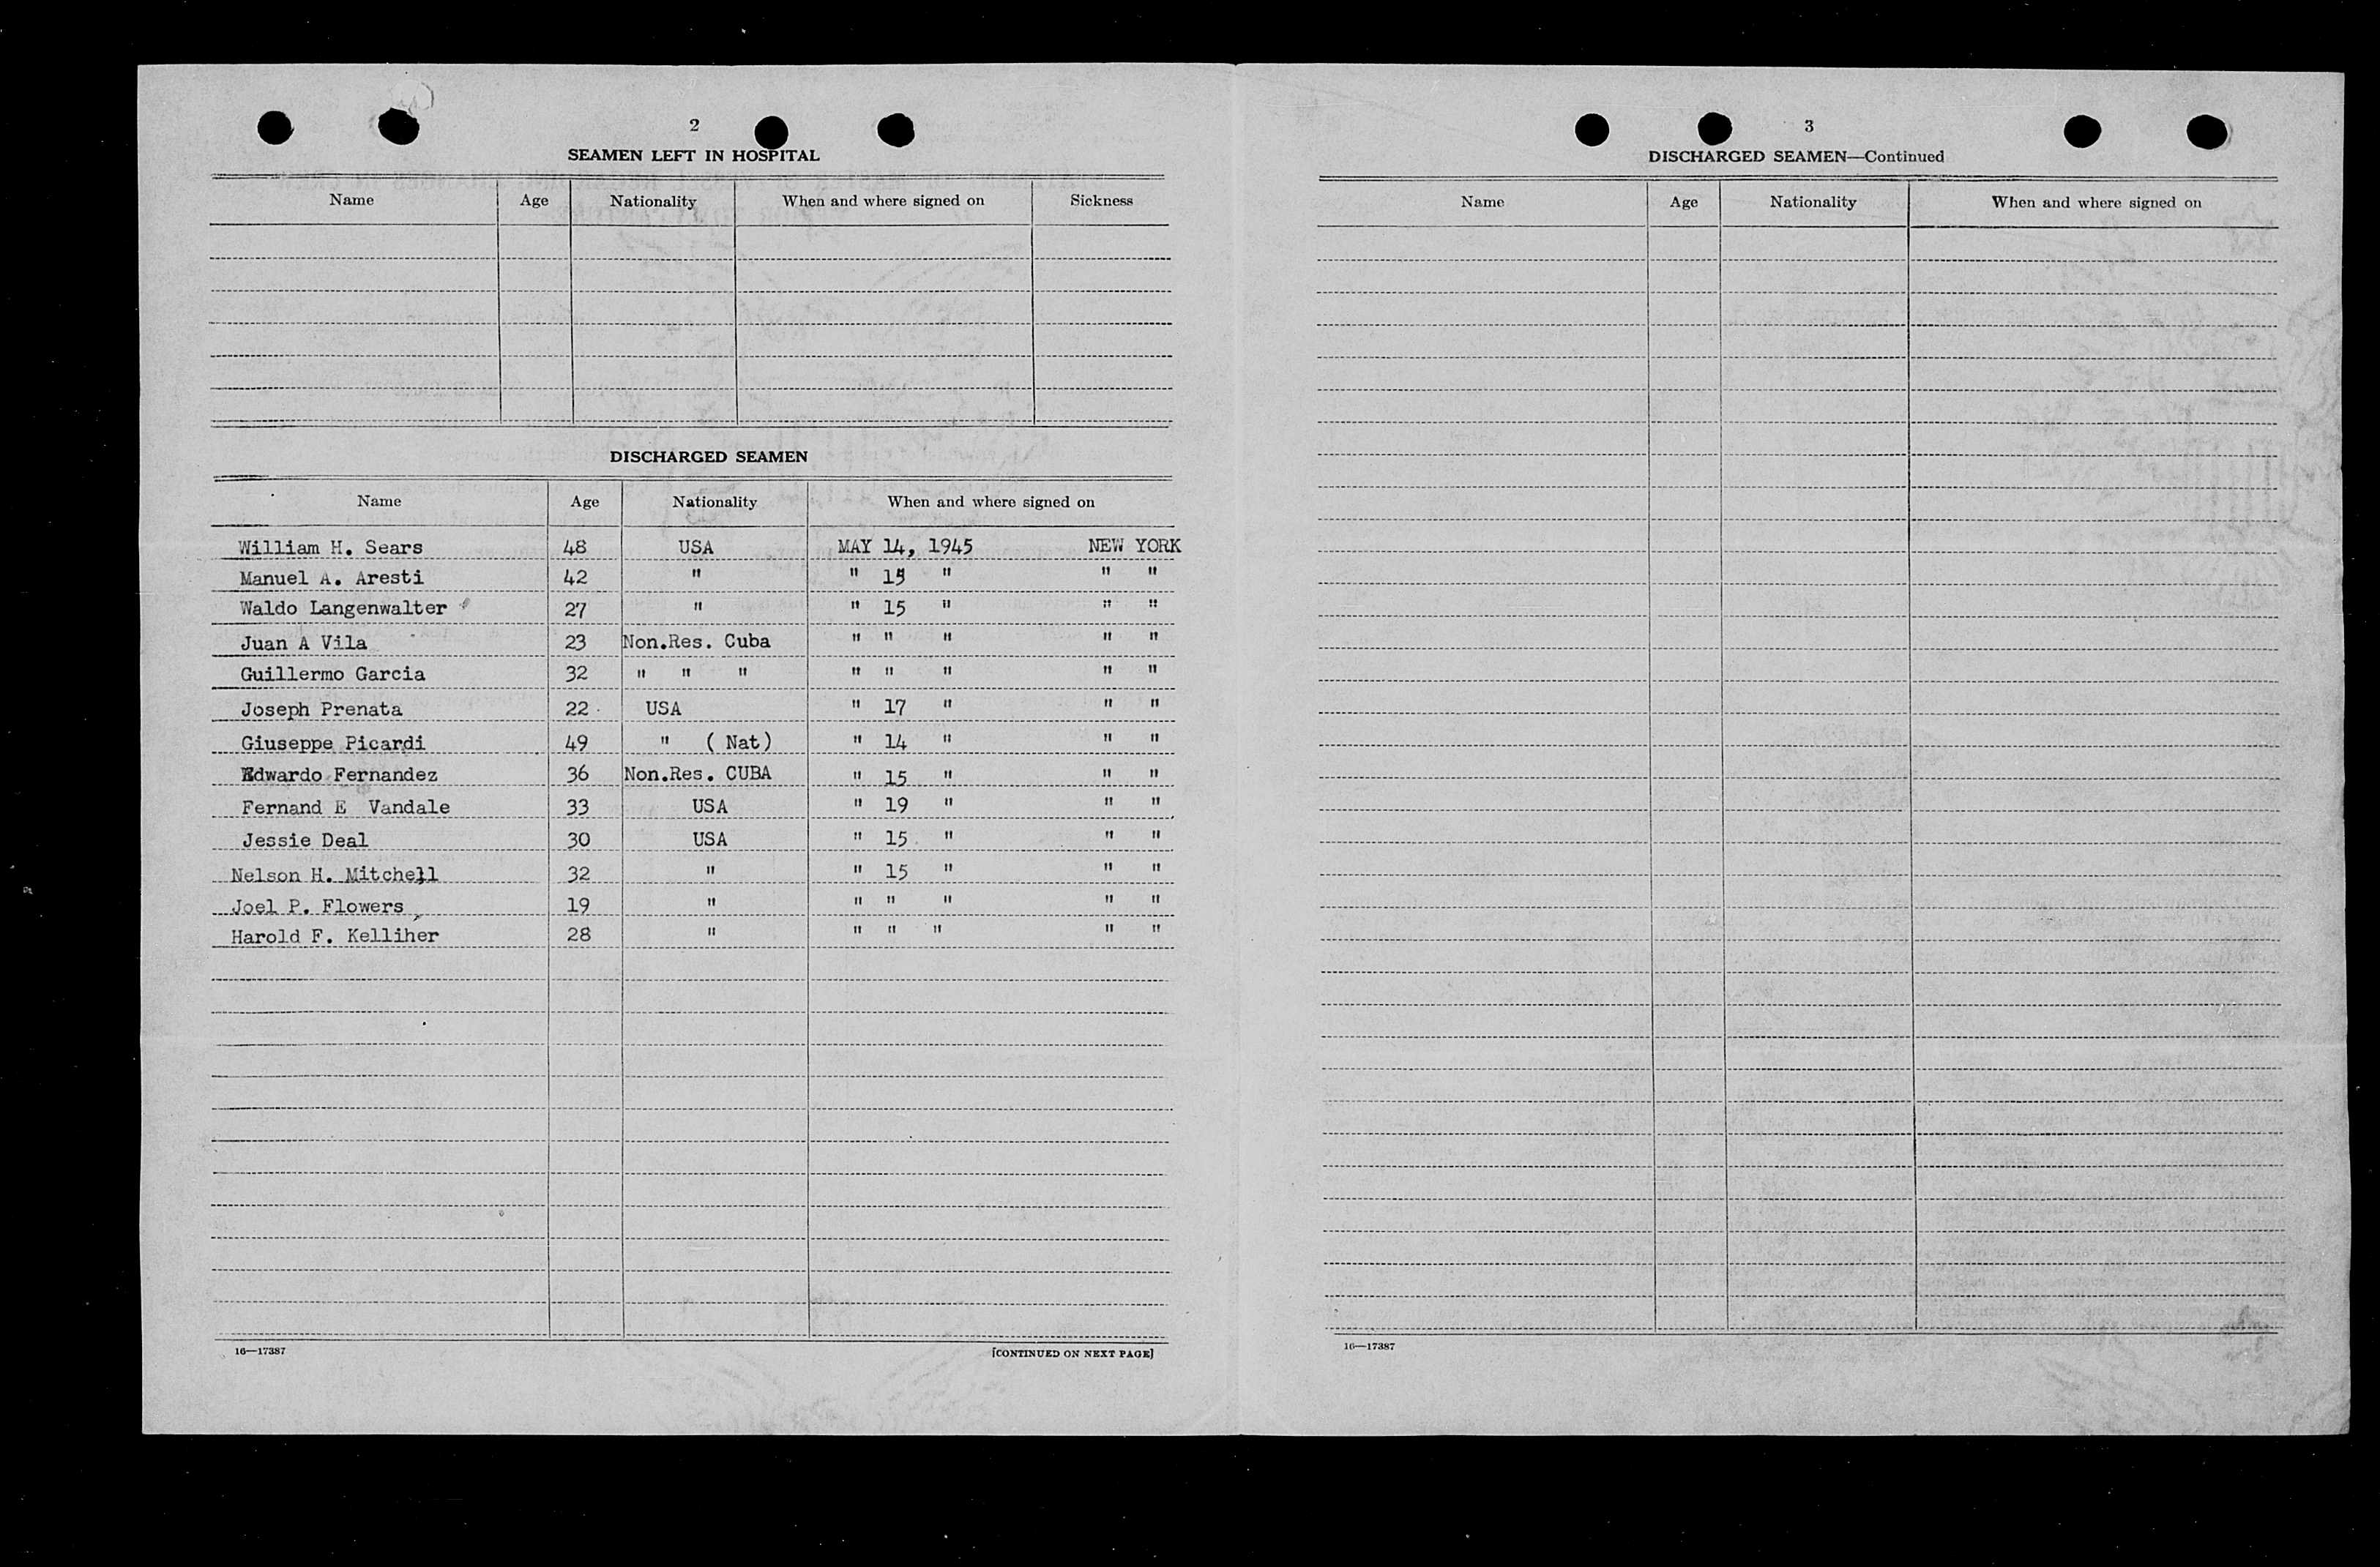 2
SEAMEN LEFT IN HOSPITAL
Name Age Nationality When and where signed on Sickness
DISCHARGED SEAMEN
Name Age Nationality When and where signed on
William H. Sears 48 USA MAY 14, 1945 NEW YORK
Manuel A. Aresti 42 " " 15 " " "
Waldo Langenwalter 27 " " 15 " " "
Juan A Vila 23 Non.Res. Cuba " " " " "
Guillermo Garcia 32 " " " " " " " "
Joseph Prenata 22 USA " 17 " " "
Giuseppe Picardi 49 " ( Nat) " 14 " " "
Edwardo Fernandez 36 Non.Res. CUBA " 15 " " "
Fernand E Vandale 33 USA " 19 " " "
Jessie Deal 30 USA " 15 " " "
Nelson H. Mitchell 32 " " 15 " " "
Joel P. Flowers 19 " " " " " "
Harold F. Kelliher 28 " " " " " "
16—17387 [CONTINUED ON NEXT PAGE]
3
DISCHARGED SEAMEN—Continued
Name Age Nationality When and where signed on
16—17387